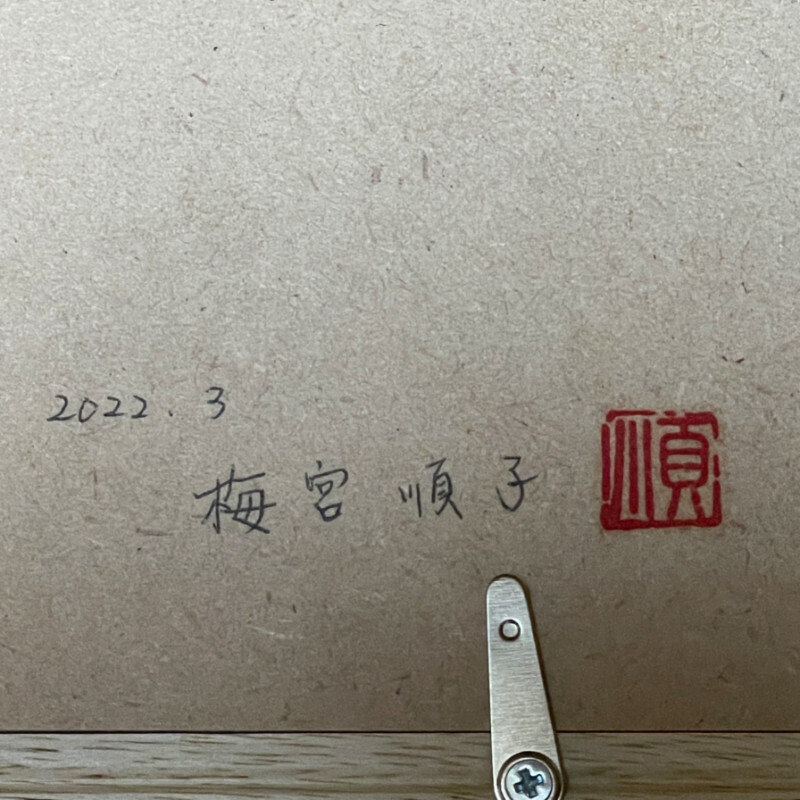 2022.3
梅宮 順子
順